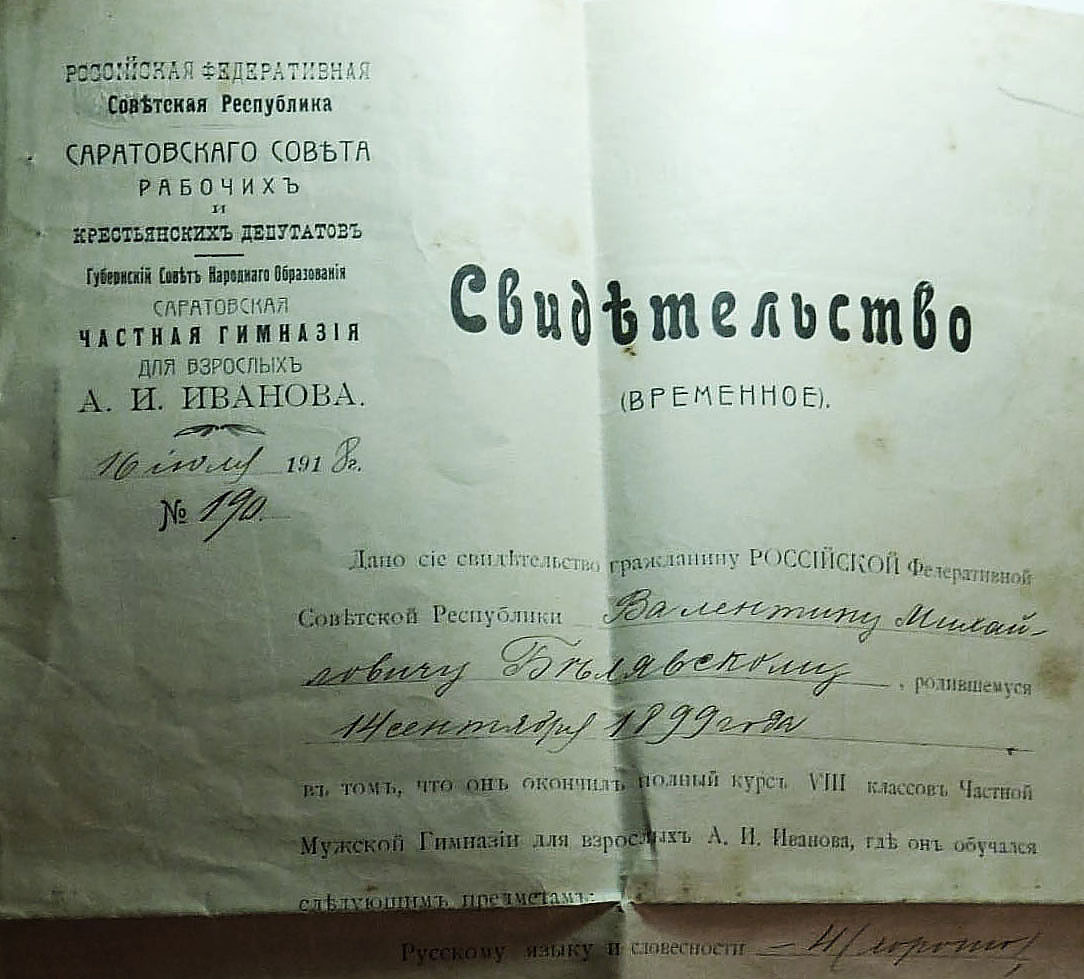 РОССІЙСКАЯ ФЕДЕРАТИВНАЯ
Совѣтская Республика
САРАТОВСКАГО СОВѢТА
РАБОЧИХЪ
И
КРЕСТЬЯНСКИХЪ ДЕПУТАТОВЪ
Губернскій Совѣтъ Народнаго Образованія
САРАТОВСКАЯ
ЧАСТНАЯ ГИМНАЗІЯ
ДЛЯ ВЗРОСЛЫХЪ
А. И. ИВАНОВА.
16 іюля 1918 г.
№ 190.
Свидѣтельство
(ВРЕМЕННОЕ).
Дано сіе свидѣтельство гражданину РОССІЙСКОЙ Федеративной
Совѣтской Республики Валентину Михай-
ловичу Бѣлявскому, родившемуся
14 сентября 1899 года
въ томъ, что онъ окончилъ полный курсъ VIII классовъ Частной
Мужской Гимназіи для взрослыхъ А. И. Иванова, гдѣ онъ обучался
слѣдующимъ предметамъ:
Русскому языку и словесности – 4 (хорошо)